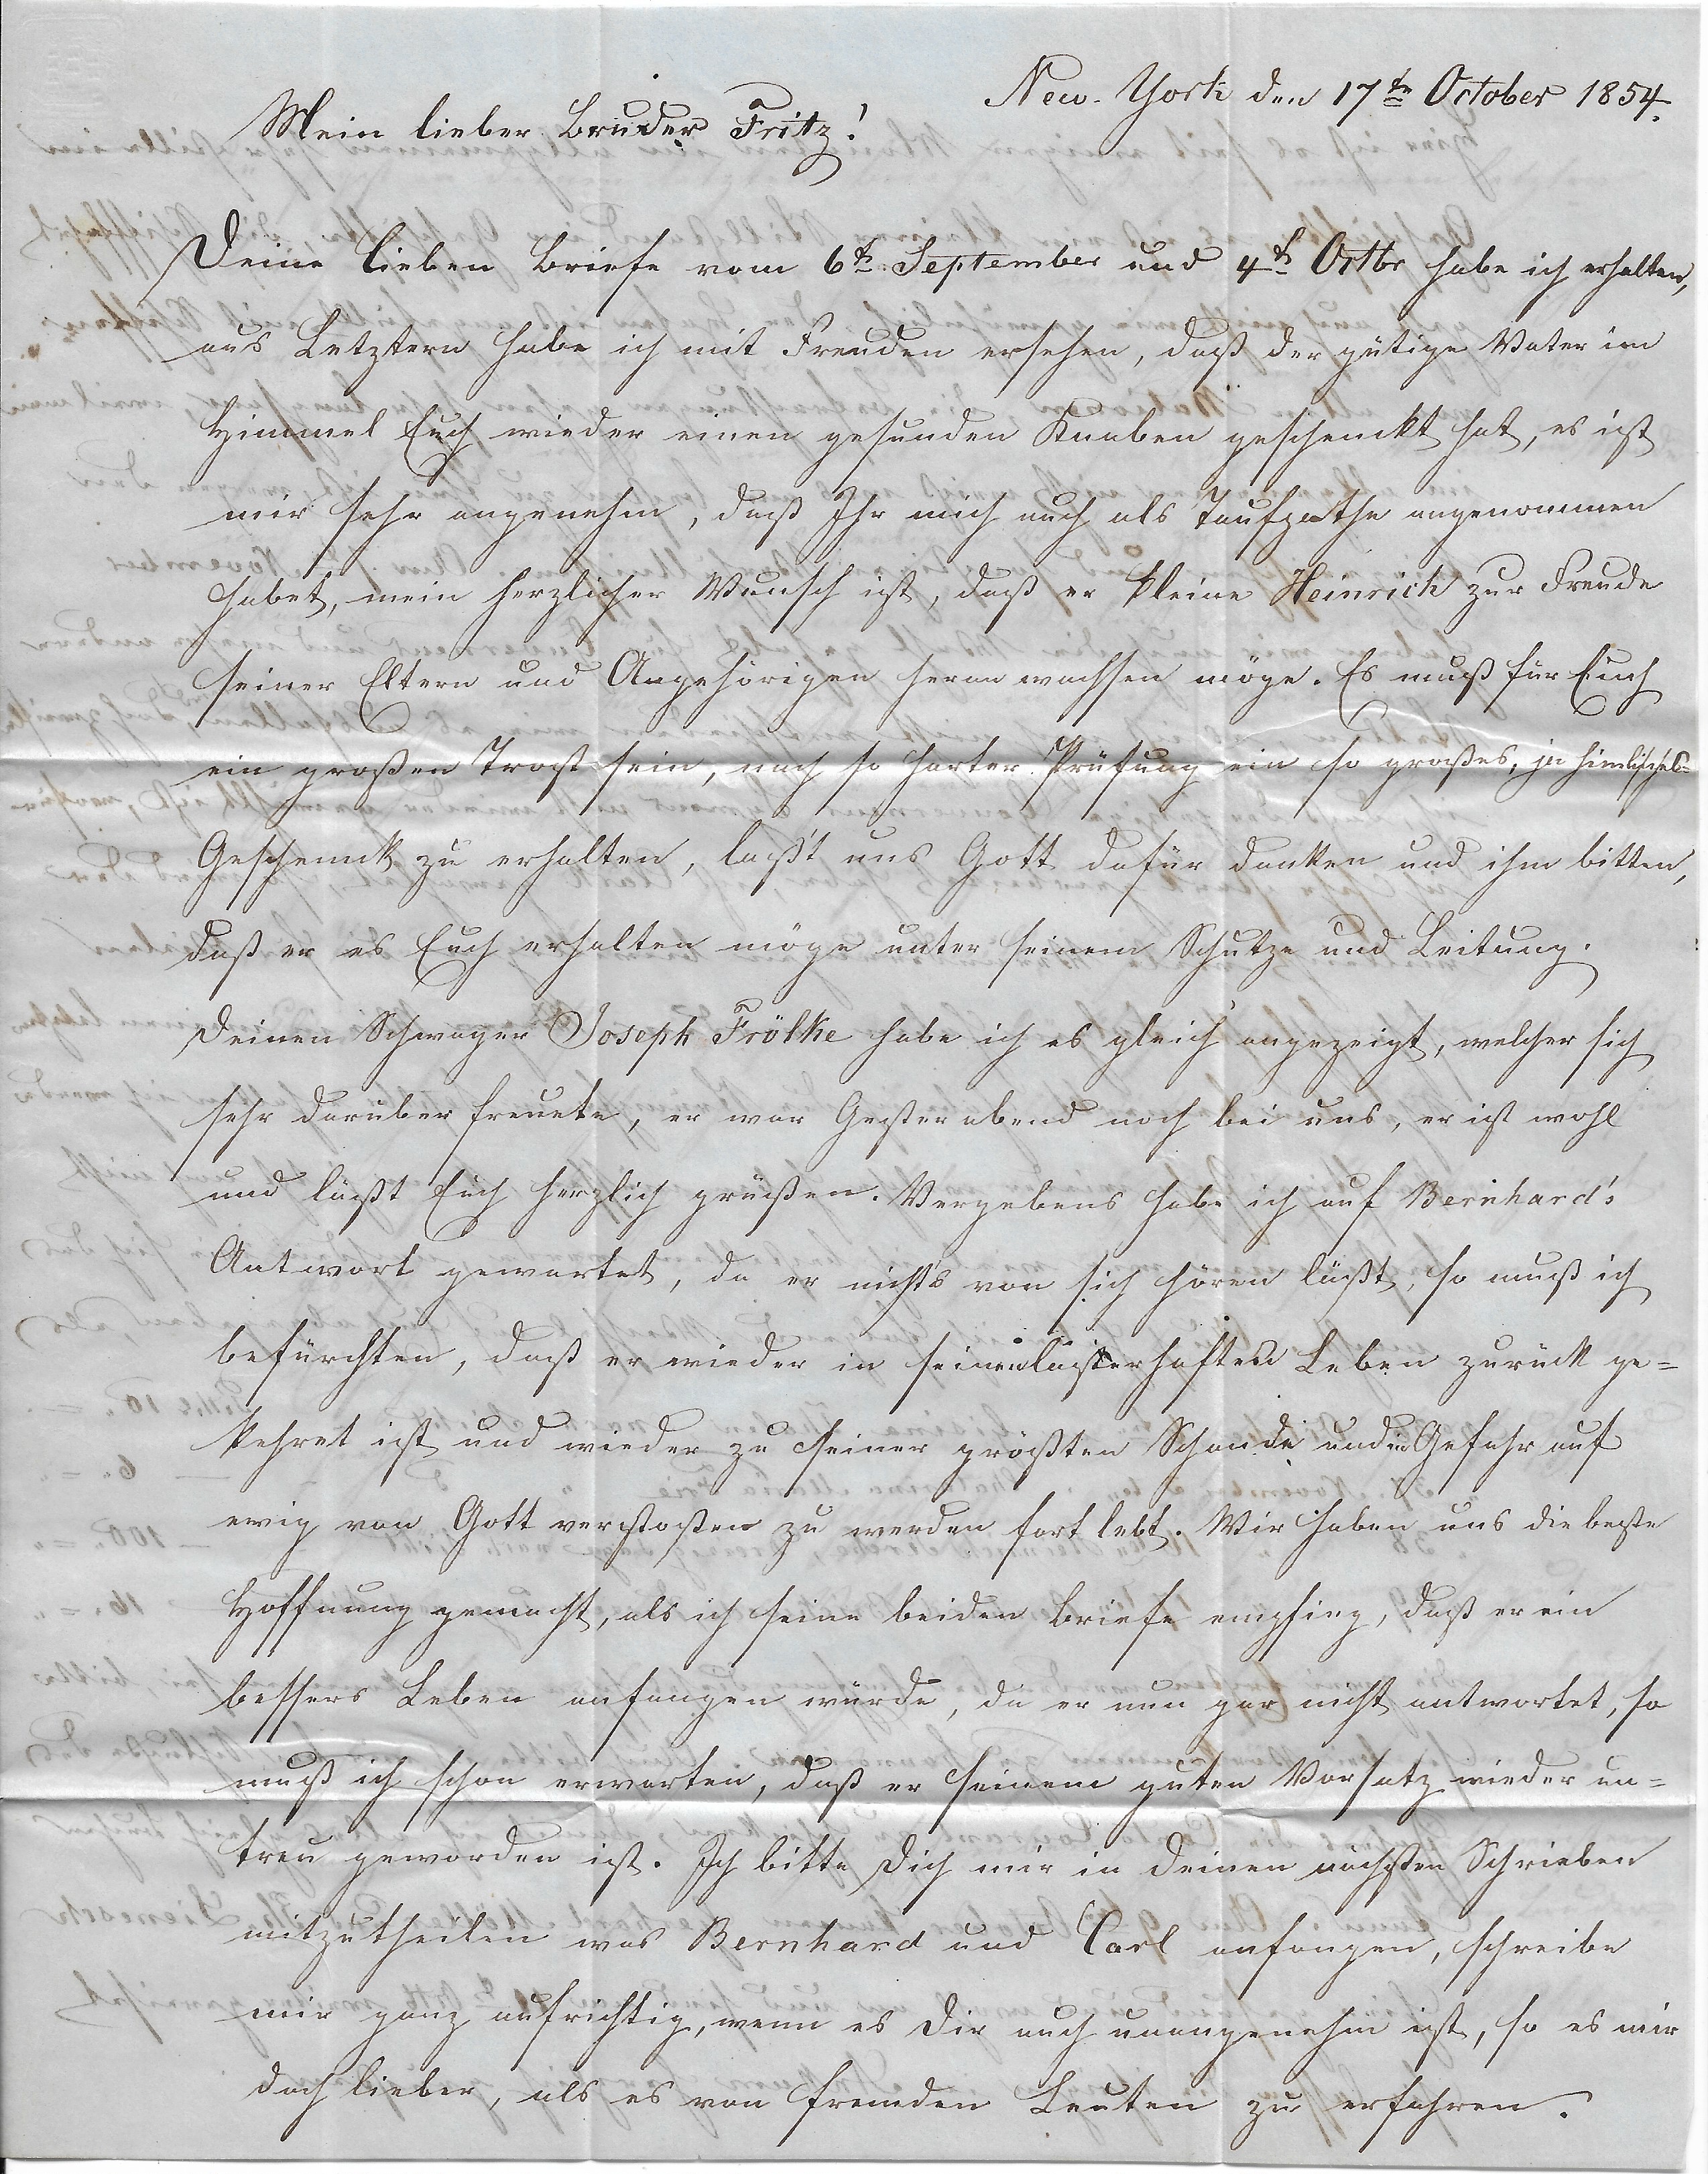 New-York den 17tn October 1854.
Mein lieber Bruder Fritz!
Deine lieben Briefe vom 6tn September und 4tn Octbr habe ich erhalten,
aus Letztern habe ich mit Freuden ersehen, daß der gütige Vater im
Himmel Euch wieder einen gesunden Knaben geschenckt hat, es ist
mir sehr angenehm, daß Ihr mich auch als Taufpathe angenommen
habet, mein herzlicher Wunsch ist, daß er kleine Heinrich zur Freude
seiner Eltern und Angehörigen heran wachsen möge. Es muß für Euch
ein großen Trost sein, nach so harter Prüfung ein so großes, ja himlisches
Geschenck zu erhalten, laß't uns Gott dafür danken und ihm bitten,
daß er es Euch erhalten möge unter seinem Schutze und Leitung.
Deinen Schwager Joseph Frölke habe ich es gleich angezeigt, welcher sich
sehr darüber freuete, er war Gester abend noch bei uns, er ist wohl
und läßt Euch herzlich grüßen. Vergebens habe ich auf Bernhard's
Antwort gewartet, da er nichts von sich hören läßt, so muß ich
befürchten, daß er wieder in seinen lasterhaften Leben zurück ge=
kehret ist und wieder zu seiner größten Schande und in Gefahr auf
ewig von Gott verstoßen zu werden fort lebt. Wir haben uns die beste
Hoffnung gemacht, als ich seine beiden Briefe empfing, daß er ein
bessers Leben anfangen würde, da er nun gar nicht antwortet, so
muß ich schon erwarten, daß er seinem guten Vorsatz wieder un=
treu geworden ist. Ich bitte Dich mir in Deinen nächsten Schrieben
mitzutheilen was Bernhard und Carl anfangen, schreibe
mir ganz aufrichtig, wenn es Dir auch unangenehm ist, so es mir
doch lieber, als es von fremden Leuten zu erfahren.